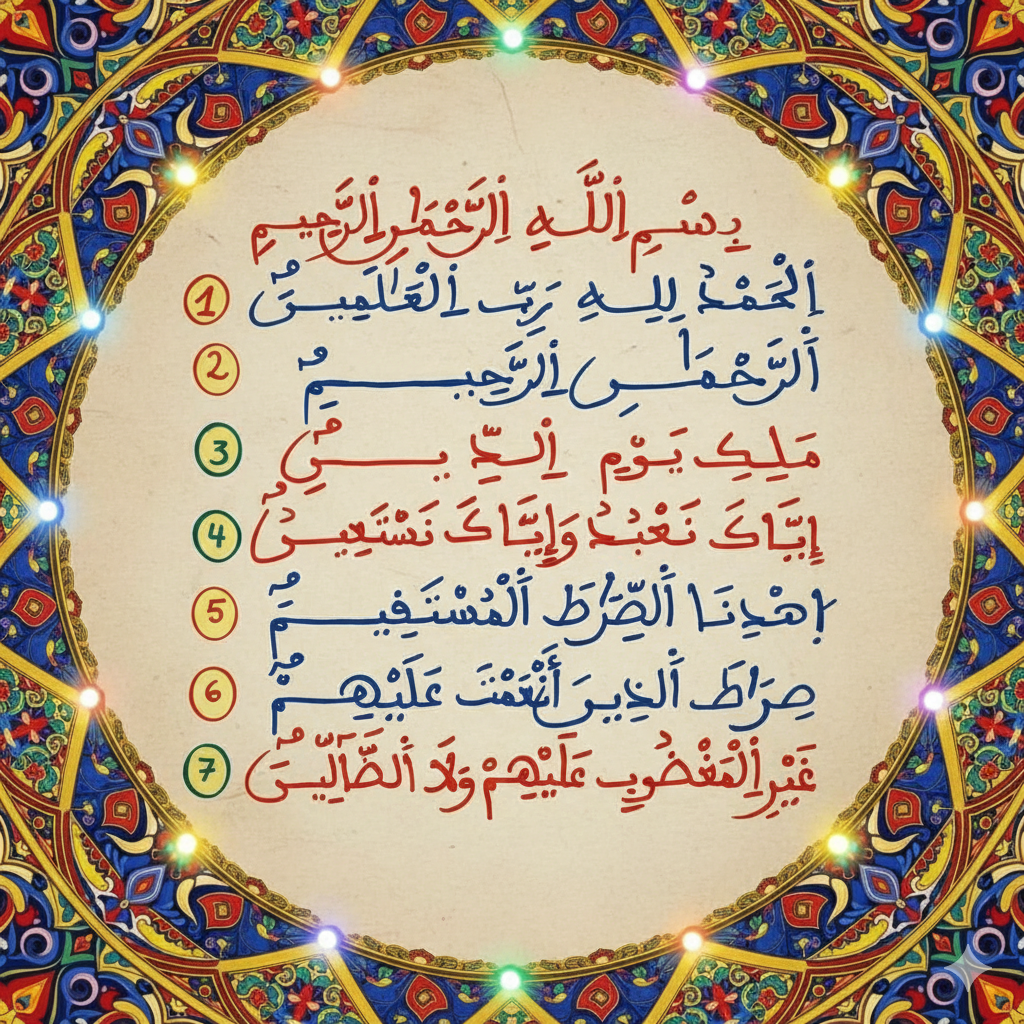 بِسْمِ اِللَّهِ اِلرَّحْمَٰنِ اِلرَّحِيمِ
اِلْحَمْدُ لِلهِ رَبِّ اِلْعَٰلَمِينَ 1
اَلرَّحْمَٰنِ اِلرَّحِيمِ 2
مَلِكِ يَوْمِ اِلدِّينِ 3
إِيَّاكَ نَعْبُدُ وَإِيَّاكَ نَسْتَعِينُ 4
اِهْدِنَا اَلصِّرَٰطَ اَلْمُسْتَفِيمَ 5
صِرَٰطَ اَلذِينَ أَنْعَمْتَ عَلَيْهِمْ 6
غَيْرِ اِلْمَغْضُوبِ عَلَيْهِمْ وَلَا اَلضَّآلِّينَ 7